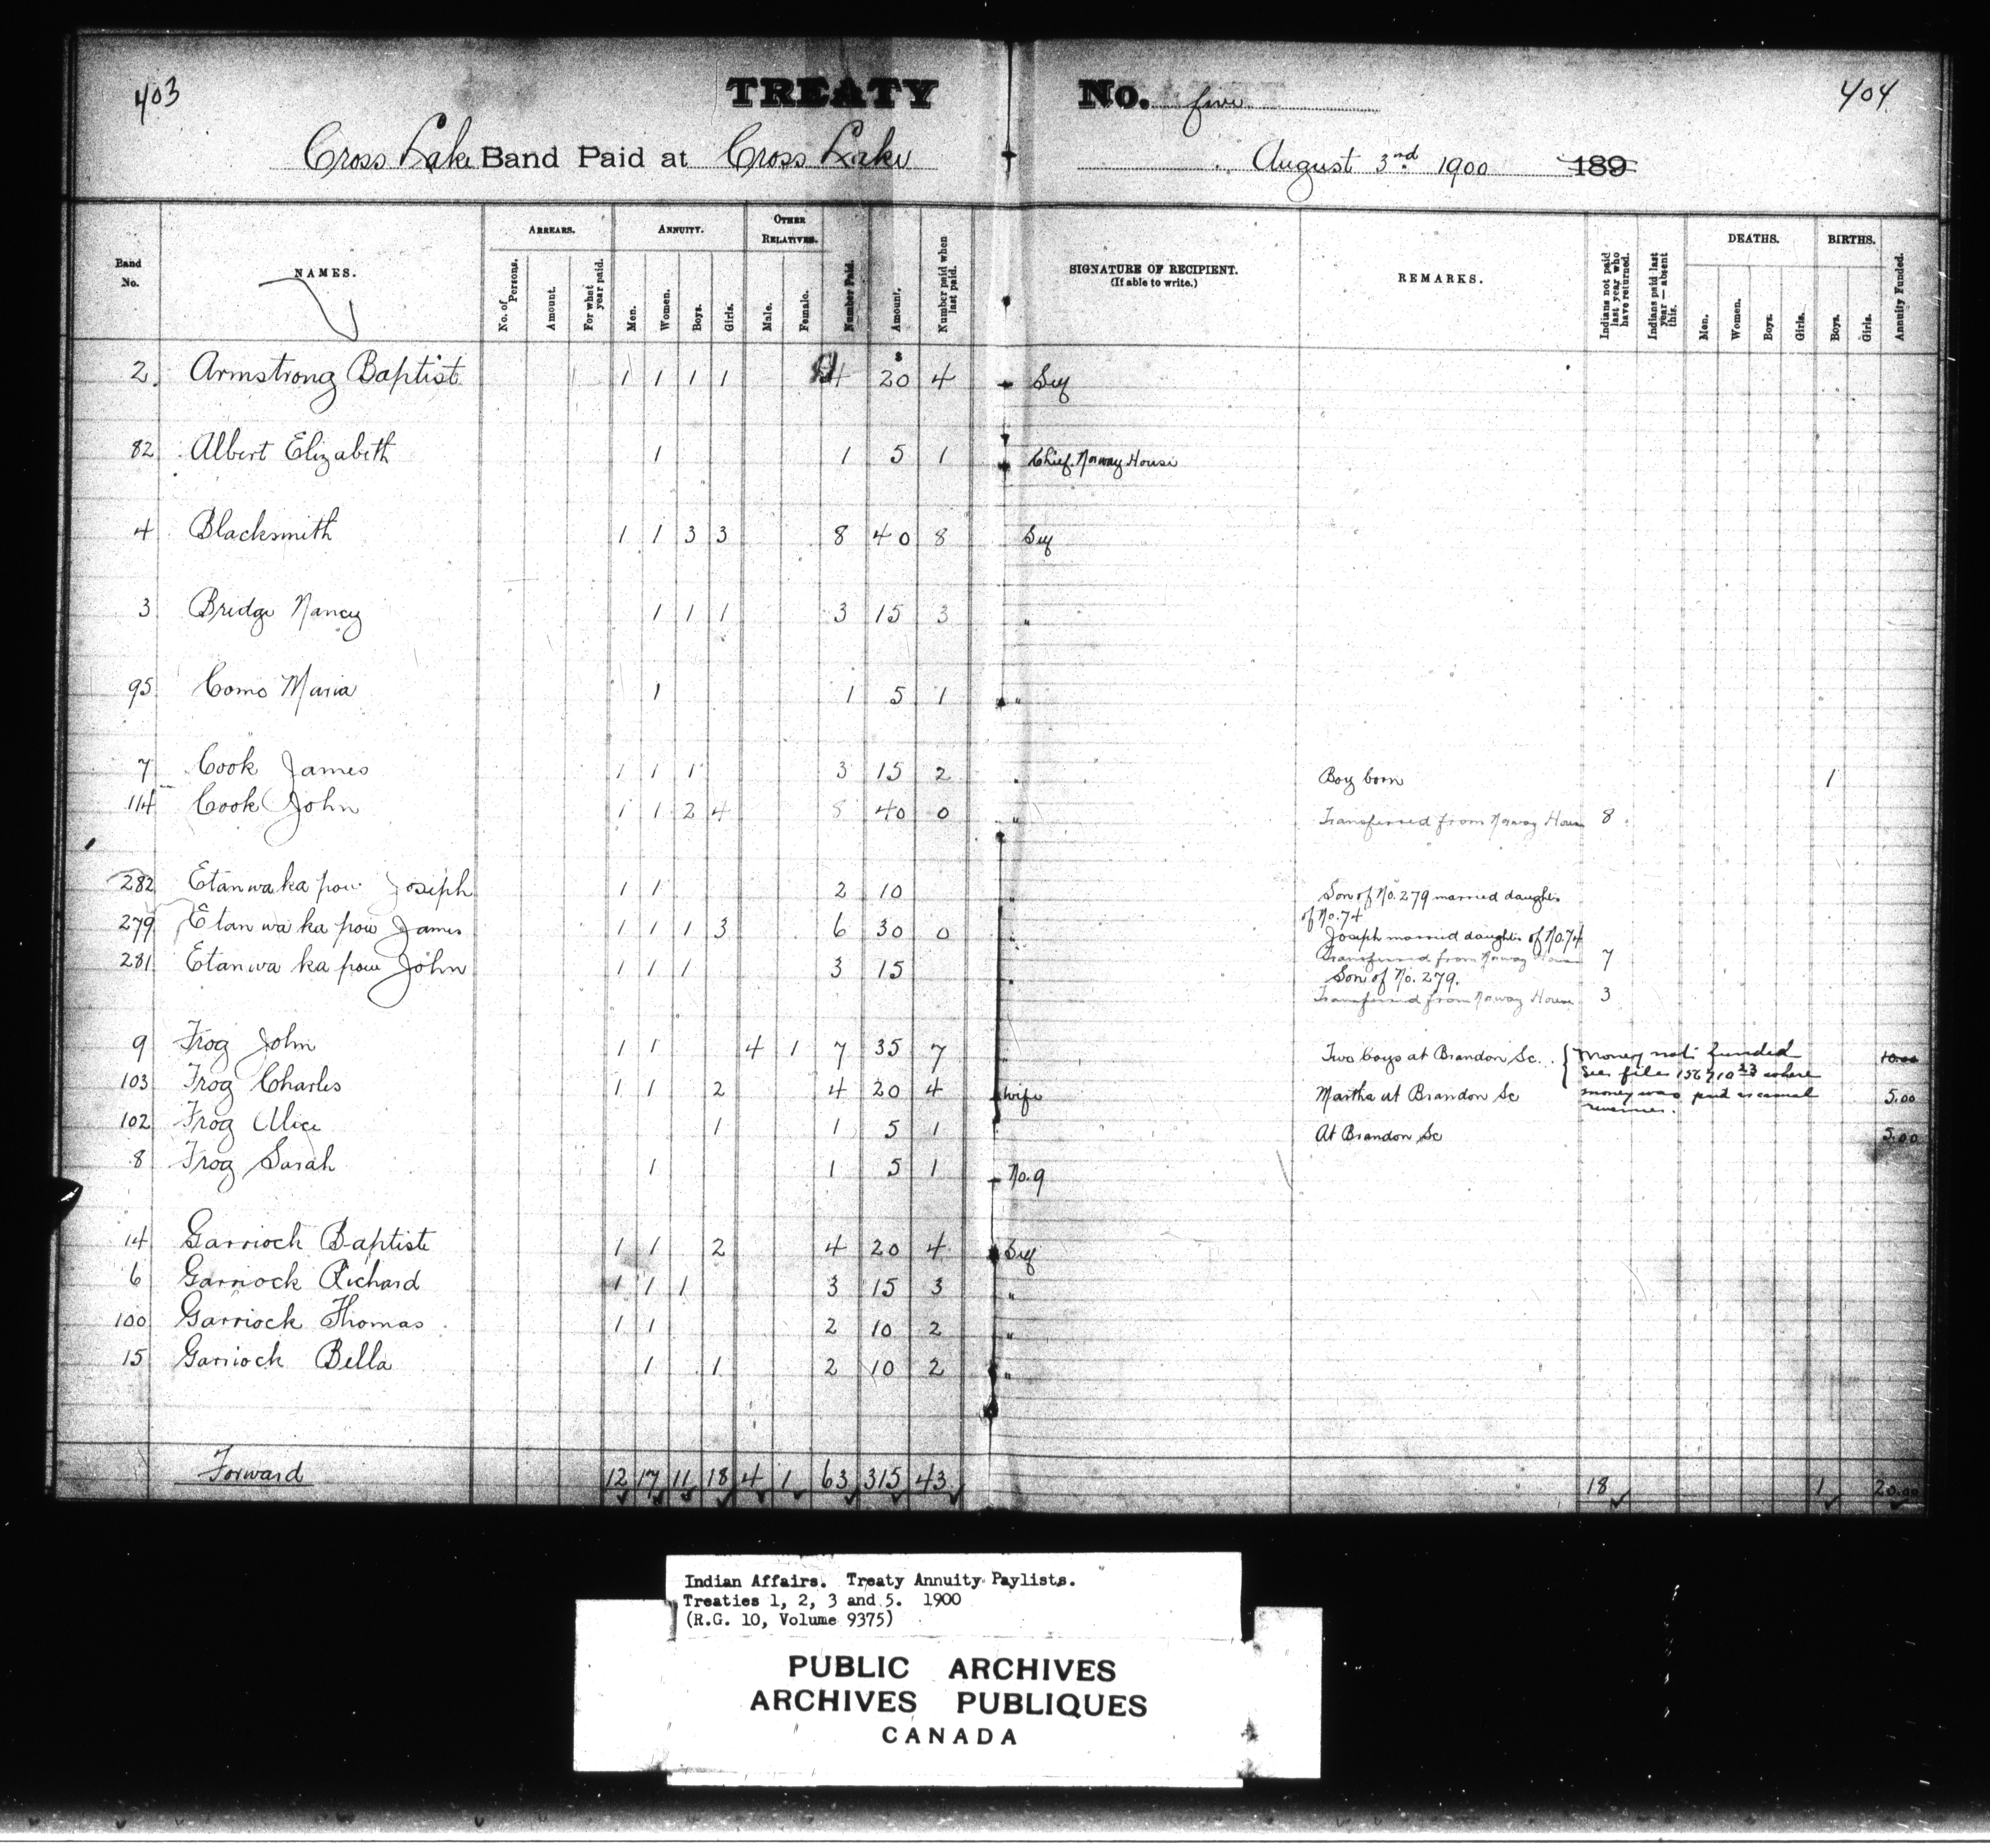 403 TREATY No. five 404
Cross Lake Band Paid at Cross Lake August 3nd 1900 189
ARREARS. ANNUITY. OTHER RELATIVES. DEATHS. BIRTHS.
Band No. NAMES. No. of Persons. Amount. For what year paid. Men. Women. Boys. Girls. Male. Female. Number Paid. Amount. Number paid when last paid. SIGNATURE OF RECIPIENT. (If able to write.) REMARKS. Indians not paid last year who have returned. Indians paid last year — absent this. Men. Women. Boys. Girls. Boys. Girls. Annuity Funded.
2 Armstrong Baptist 1 1 1 1 4 $ 20 4 Self
82 Albert Elizabeth 1 1 5 1 Chief Norway House
4 Blacksmith 1 1 3 3 8 40 8 Self
3 Bridge Nancy 1 1 1 3 15 3 "
95 Como Maria 1 1 5 1 "
7 Cook James 1 1 1 3 15 2 " Boy born 1
114 Cook John 1 1 2 4 8 40 0 " Transferred from Norway House 8
282 Etanwakapow Joseph 1 1 2 10 " Son of No. 279 married daughter
of No. 74
279 Etanwakapow James 1 1 1 3 6 30 0 " Joseph married daughter of No. 74
Transferred from Norway House 7
281 Etanwakapow John 1 1 1 3 15 " Son of No. 279.
Transferred from Norway House 3
9 Frog John 1 1 4 1 7 35 7 " Two boys at Brandon Sc. Money not funded 10.00
See file 156710 where
103 Frog Charles 1 1 2 4 20 4 Wife Martha at Brandon Sc money was paid as casual 5.00
revenue.
102 Frog Alice 1 1 5 1 At Brandon Sc 5.00
8 Frog Sarah 1 1 5 1 No. 9
14 Garriock Baptiste 1 1 2 4 20 4 Self
6 Garriock Richard 1 1 1 3 15 3 "
100 Garriock Thomas 1 1 2 10 2 "
15 Garriock Bella 1 1 2 10 2 "
Forward 12 17 11 18 4 1 63 315 43 18 1 20.00
Indian Affairs. Treaty Annuity Paylists.
Treaties 1, 2, 3 and 5. 1900
(R.G. 10, Volume 9375)
PUBLIC ARCHIVES
ARCHIVES PUBLIQUES
CANADA